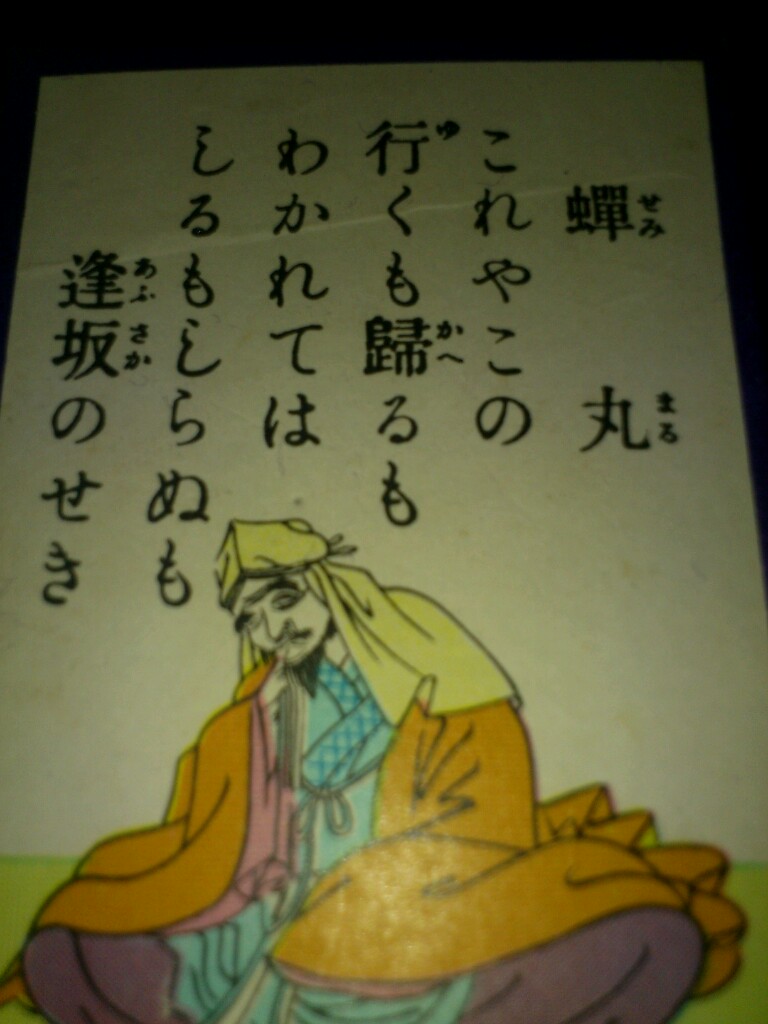 蟬丸
せみまる
これやこの
行くも歸るも
ゆかへ
わかれては
しるもしらぬも
逢坂のせき
あふさか